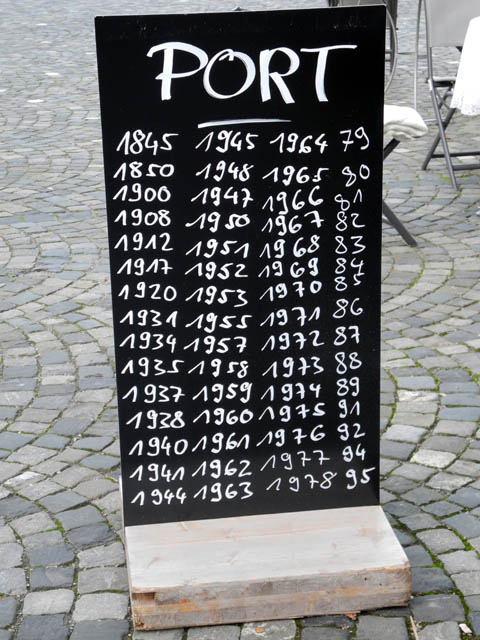 PORT
1845 1945 1964 79
1850 1948 1965 80
1900 1947 1966 81
1908 1950 1967 82
1912 1951 1968 83
1917 1952 1969 84
1920 1953 1970 85
1931 1955 1971 86
1934 1957 1972 87
1935 1958 1973 88
1937 1959 1974 89
1938 1960 1975 91
1940 1961 1976 92
1941 1962 1977 94
1944 1963 1978 95